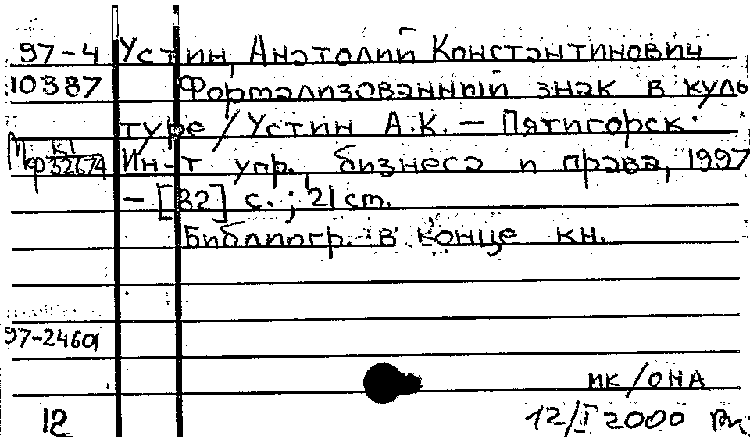 97-4 Устин, Анатолий Константинович
10387 Формализованный знак в куль
туре / Устин А.К. — Пятигорск:
К1 Ин-т упр., бизнеса и права, 1997
— [32] с. ; 21 cm.
Библиогр. в конце кн.
97-24601
мк/она
12 12/I 2000